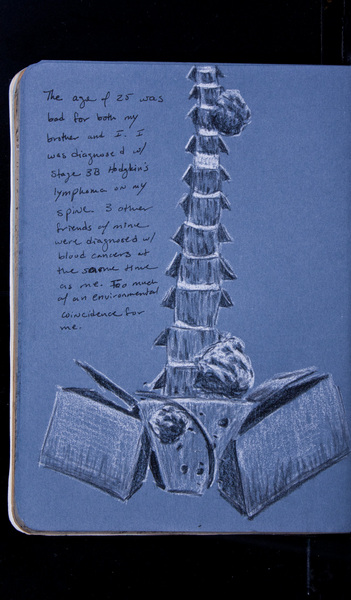 The age of 25 was
bad for both my
brother and I. I
was diagnosed w/
Stage 3B Hodgkin's
lymphoma on my
spine. 3 other
friends of mine
were diagnosed w/
blood cancers at
the same time
as me. Too much
of an environmental
coincidence for
me.